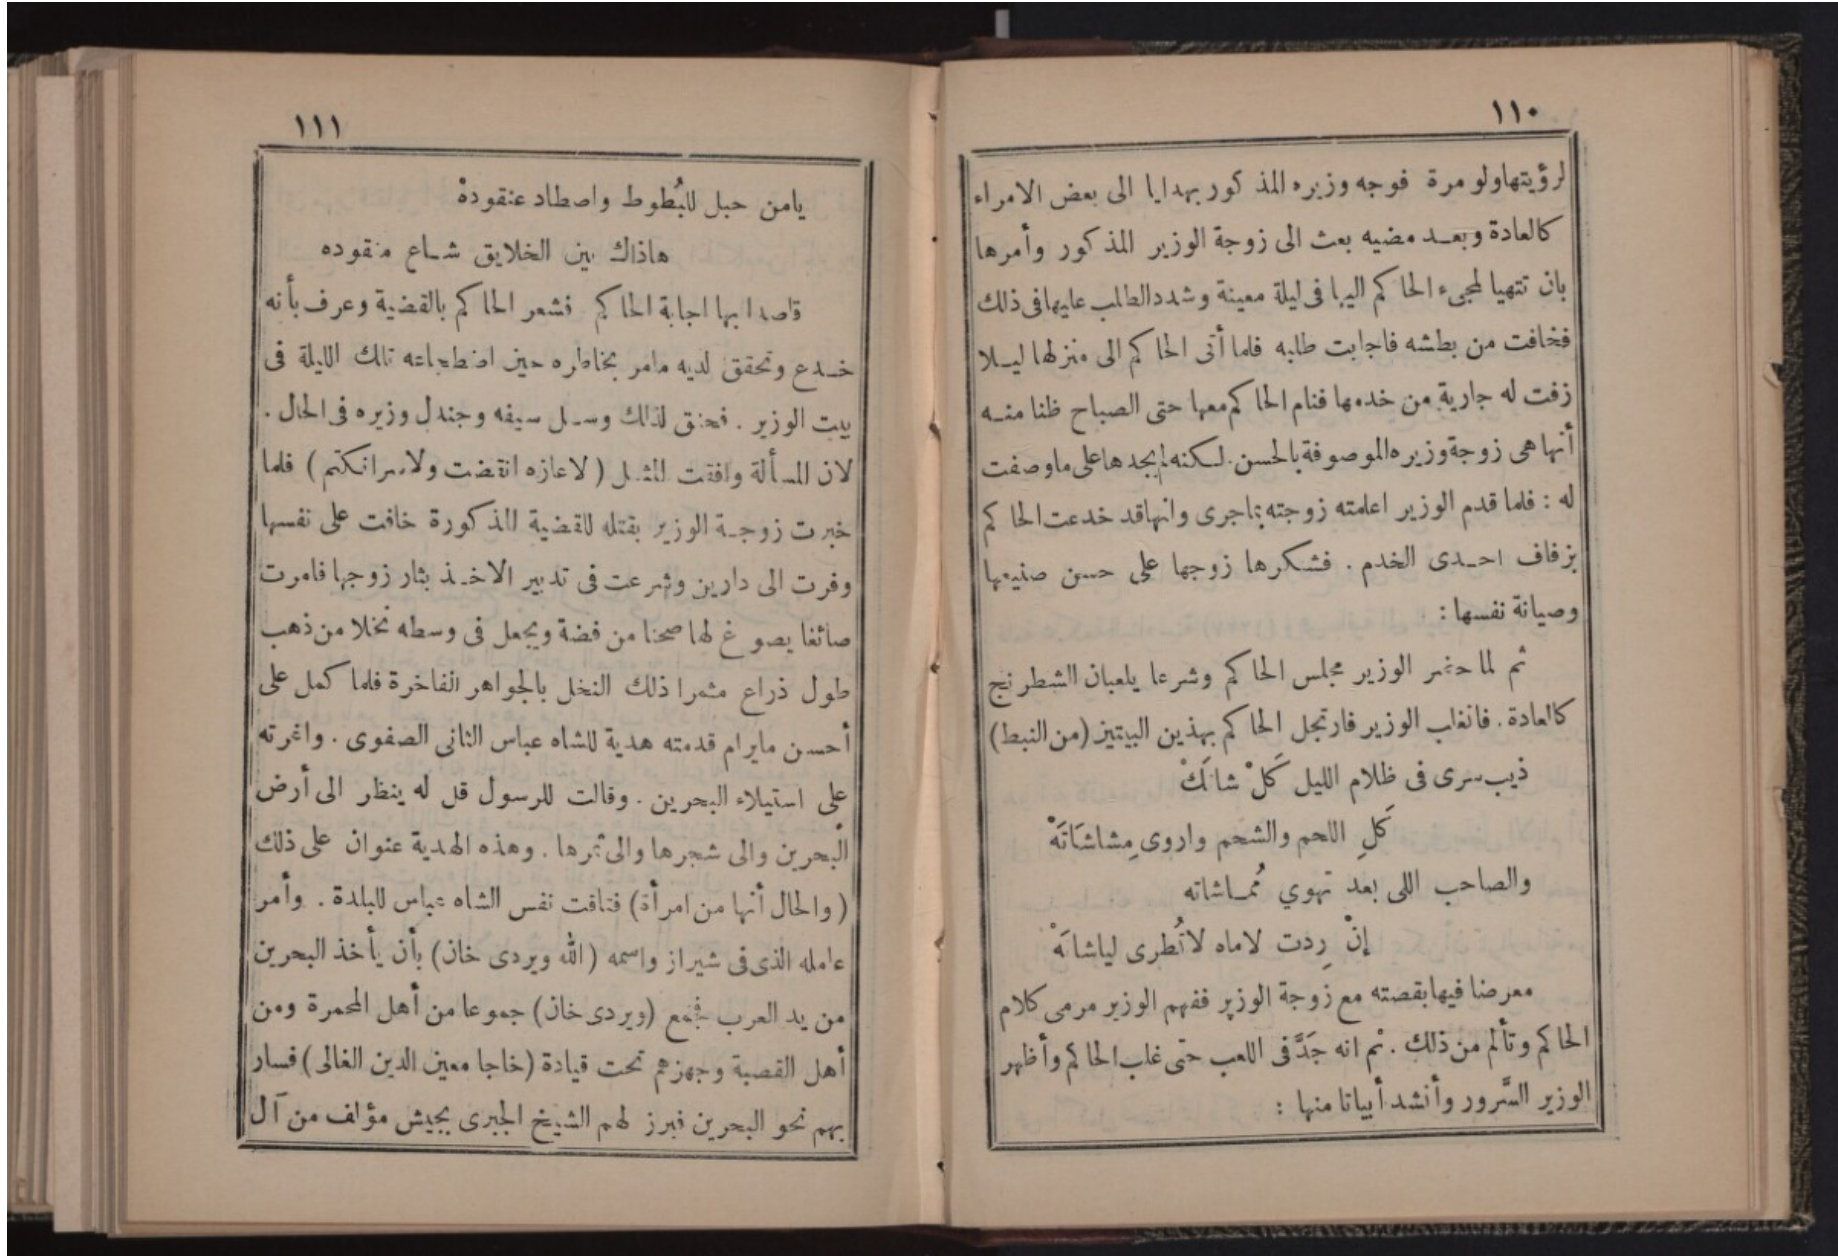 ١١٠
لرؤيتها ولو مرة فوجه وزيره المذكور بهدايا الى بعض الامراء
كالعادة وبعد مضيه بعث الى زوجة الوزير المذكور وأمرها
بان تتهيا لمجىء الحاكم اليها فى ليلة معينة وشدد الطلب عليها فى ذلك
فخافت من بطشه فاجابت طلبه فلما أتى الحاكم الى منزلها ليلا
زفت له جارية من خدمها فنام الحاكم معها حتى الصباح ظنا منه
أنها هى زوجة وزيره الموصوفة بالحسن. لكنه لم يجدها على ما وصفت
له : فلما قدم الوزير اعلمته زوجته بما جرى وانها قد خدعت الحاكم
بزفاف احدى الخدم . فشكرها زوجها على حسن صنيعها
وصيانة نفسها :
ثم لما حضر الوزير مجلس الحاكم وشرعا يلعبان الشطرنج
كالعادة . فانغاب الوزير فارتجل الحاكم بهذين البيتين (من النبط)
ذيب سرى فى ظلام الليل كَلْ شاتَكْ
كَلِ اللحم والشحم واروى مِشاشَاتَهْ
والصاحب اللى بعد تهوي مُمـاشاته
إنْ رِدت لاماه لا تُطرى لياشاتَهْ
معرضا فيها بقصته مع زوجة الوزير ففهم الوزير مرمى كلام
الحاكم وتألم من ذلك . ثم انه جَدَّ فى اللعب حتى غلب الحاكم وأظهر
الوزير السَّرور وأنشد أبياتا منها :
١١١
يامن حبل للبُطوط واصطاد عنقودهْ
هاذاك بين الخلايق شـاع منقوده
قاصدا بها اجابة الحاكم فشعر الحاكم بالقضية وعرف بأنه
خدع وتحقق لديه مامر بخاطره حين اضطجاعه تلك الليلة فى
بيت الوزير . فحنق لذلك وسل سيفه وجندل وزيره فى الحال .
لان المسألة وافقت المثل ( لاعازه انقضت ولاسرانكتم ) فلما
خبرت زوجة الوزير بقتله للقضية المذكورة خافت على نفسها
وفرت الى دارين وشرعت فى تدبير الاخذ بثار زوجها فامرت
صائغا يصوغ لها صحنا من فضة ويجعل فى وسطه نخلا من ذهب
طول ذراع مثمرا ذلك النخل بالجواهر الفاخرة فلما كمل على
أحسن مايرام قدمته هدية للشاه عباس الثانى الصفوى . واغرته
على استيلاء البحرين . وقالت للرسول قل له ينظر الى أرض
البحرين والى شجرها والى ثمرها . وهذه الهدية عنوان على ذلك
(والحال أنها من امرأة) فتافت نفس الشاه عباس للبلدة . وأمر
عامله الذى فى شيراز واسمه (الله ويردى خان) بأن يأخذ البحرين
من يد العرب فجمع (ويردى خان) جموعا من أهل المحمرة ومن
أهل القصبة وجهزهم تحت قيادة (خاجا معين الدين الغالى) فسار
بهم نحو البحرين فبرز لهم الشيخ الجبرى بجيش مؤلف من آل